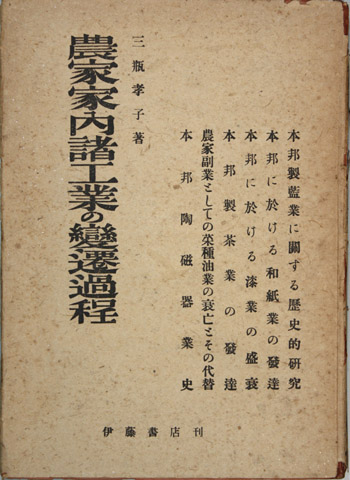 本邦製藍業に關する歴史的硏究
本邦に於ける和紙業の發達
本邦に於ける漆業の盛衰
本邦製茶業の發達
農家副業としての菜種油業の衰亡とその代替
本邦陶磁器業史
三瓶孝子著
農家家內諸工業の變遷過程
伊藤書店刊